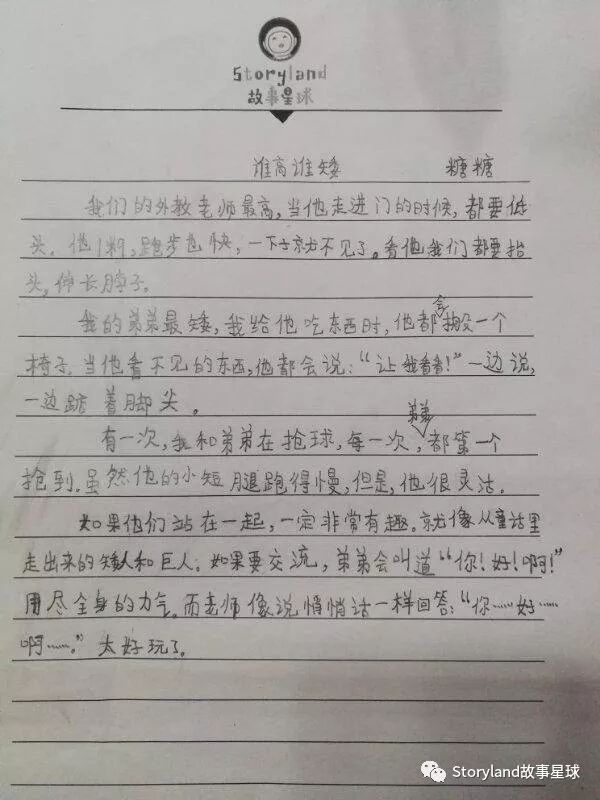 Storyland
故事星球
谁高谁矮 糖糖
我们的外教老师最高,当他走进门的时候,都要低
头。他,跑步也快,一下子就不见了。看他我们都要抬
头,伸长脖子。
我的弟弟最矮,我给他吃东西时,他都会搬一个
椅子。当他看不见的东西,他都会说:“让我看看!”一边说,
一边踮着脚尖。
有一次,我和弟弟在抢球,每一次,弟弟都第一个
抢到。虽然他的小短腿跑得慢,但是,他很灵活。
如果他们站在一起,一定非常有趣。就像从童话里
走出来的矮人和巨人。如果要交流,弟弟会叫道“你!好!啊!”
用尽全身的力气。而老师像说悄悄话一样回答:“你……好……
啊……。”太好玩了。
Storyland故事星球